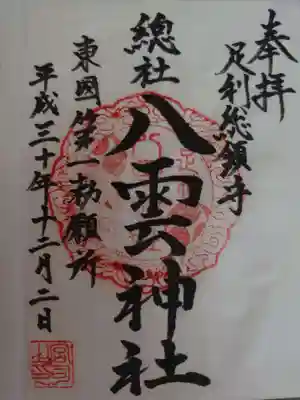 奉拝
足利総領守
總社
八雲神社
東國第一勅願所
平成三十年十二月二日